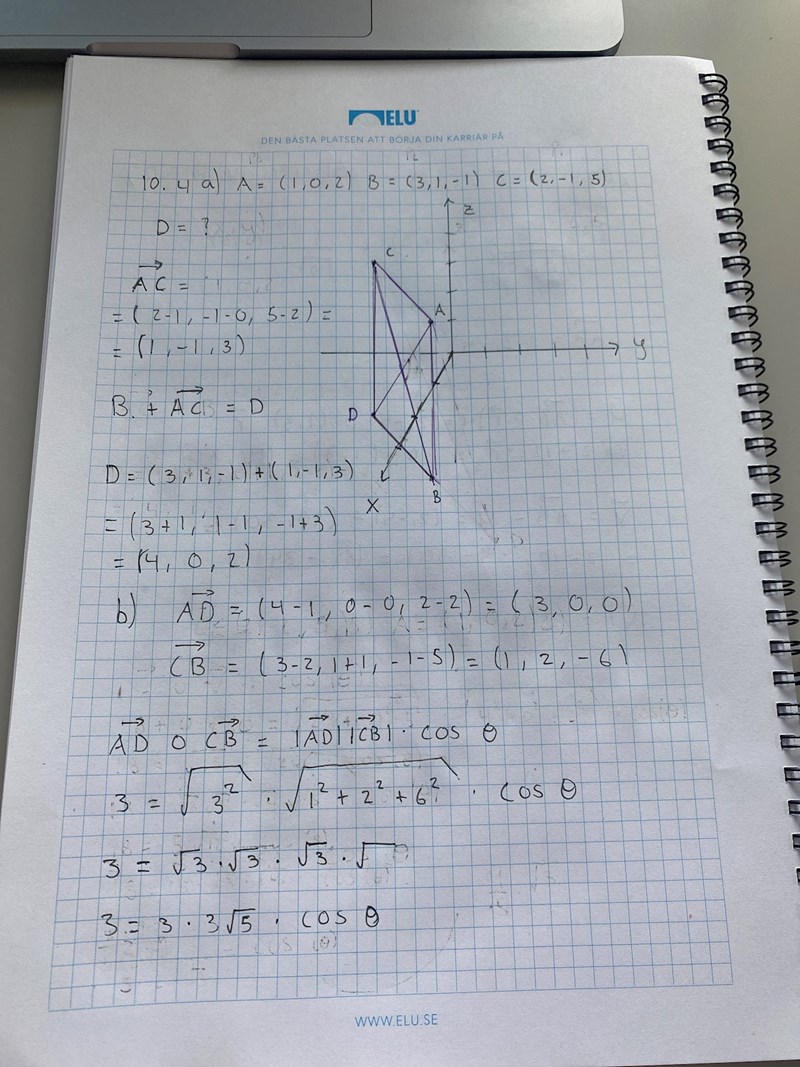 ELU
DEN BÄSTA PLATSEN ATT BÖRJA DIN KARRIÄR PÅ
10.4 a) A = (1,0,2) B = (3,1,-1) C = (2,-1,5)
D = ?
z
C
A
y
D
B
X
→AC =
= (2-1, -1-0, 5-2) =
= (1, -1, 3)
B + →AC = D
D = (3, 1, -1) + (1, -1, 3)
= (3+1, 1-1, -1+3)
= (4, 0, 2)
b) →AD = (4-1, 0-0, 2-2) = (3, 0, 0)
→CB = (3-2, 1+1, -1-5) = (1, 2, -6)
→AD o →CB = |→AD||→CB| · cos θ
3 = √3² · √1² + 2² + 6² · cos θ
3 = √3 · √3 · √3 · √
3 = 3 · 3√5 · cos θ
WWW.ELU.SE